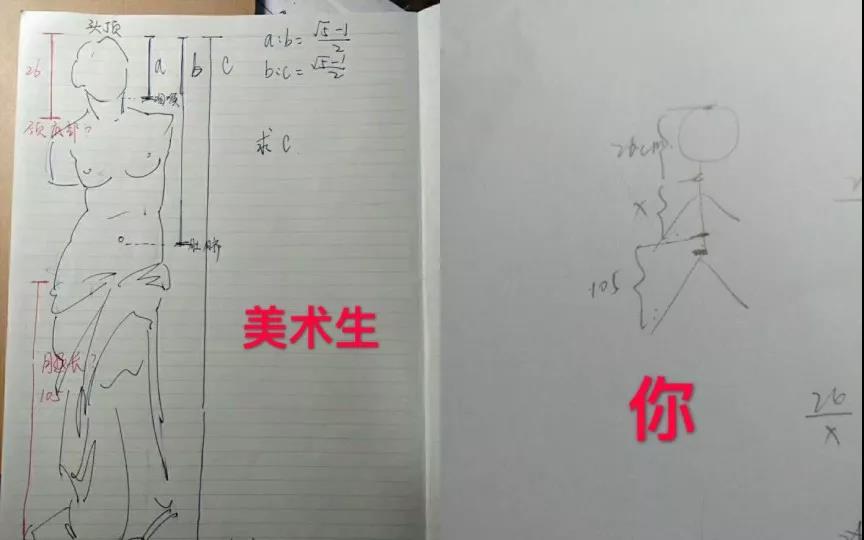 头顶
26
a
b
c
a:b=(√5-1)/2
b:c=(√5-1)/2
咽喉
颈底部?
求 C
肚脐
腿长?
105
美术生
26cm
x
105
你
26/x